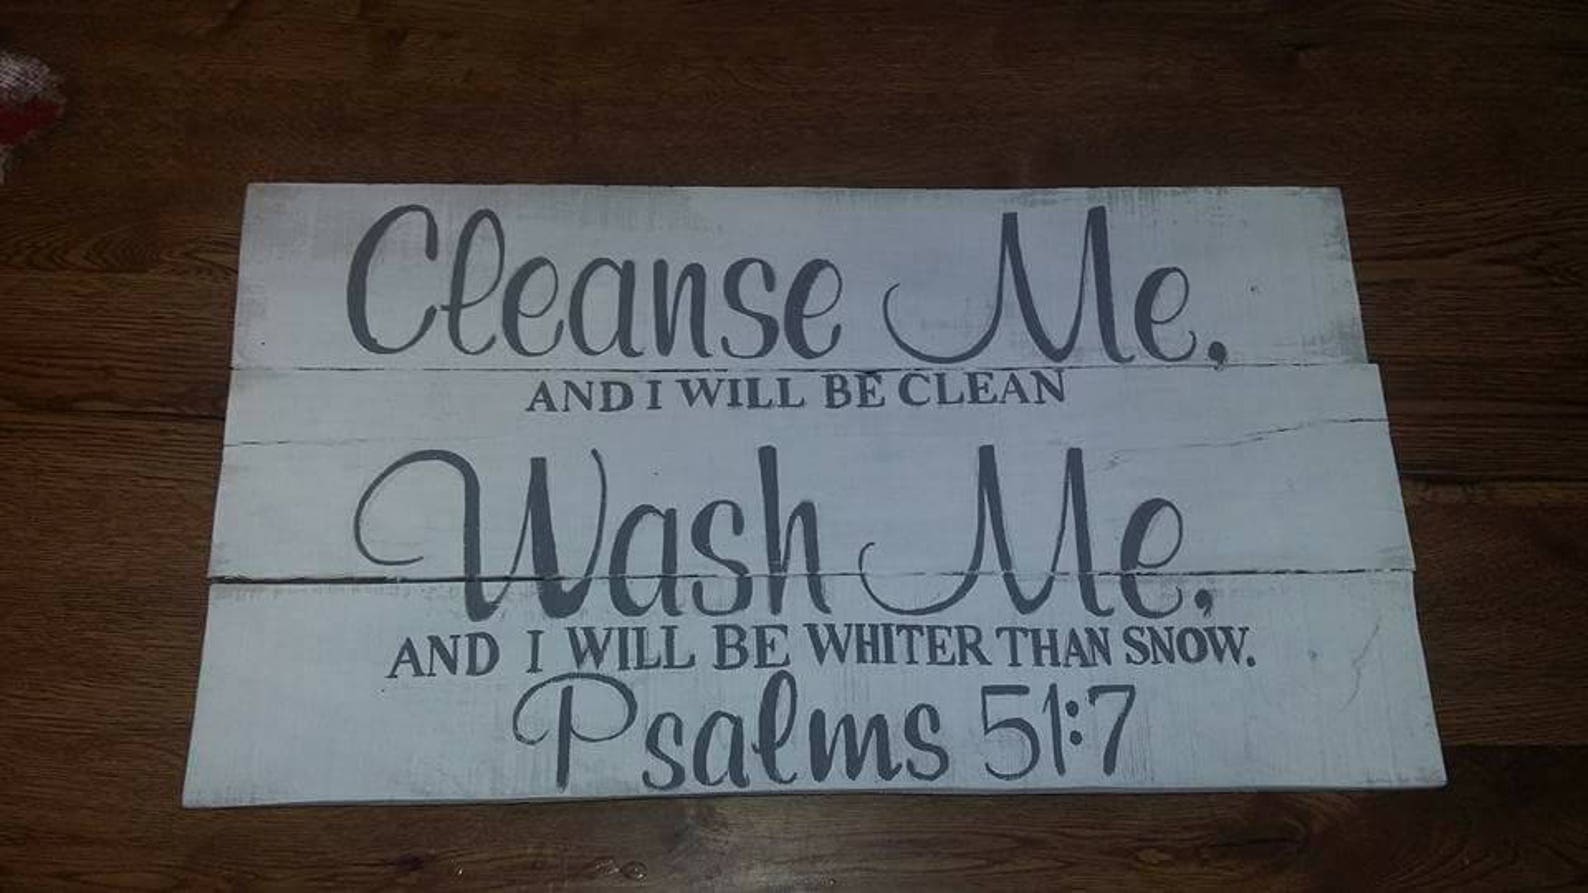 Cleanse Me,
AND I WILL BE CLEAN
Wash Me,
AND I WILL BE WHITER THAN SNOW.
Psalms 51:7